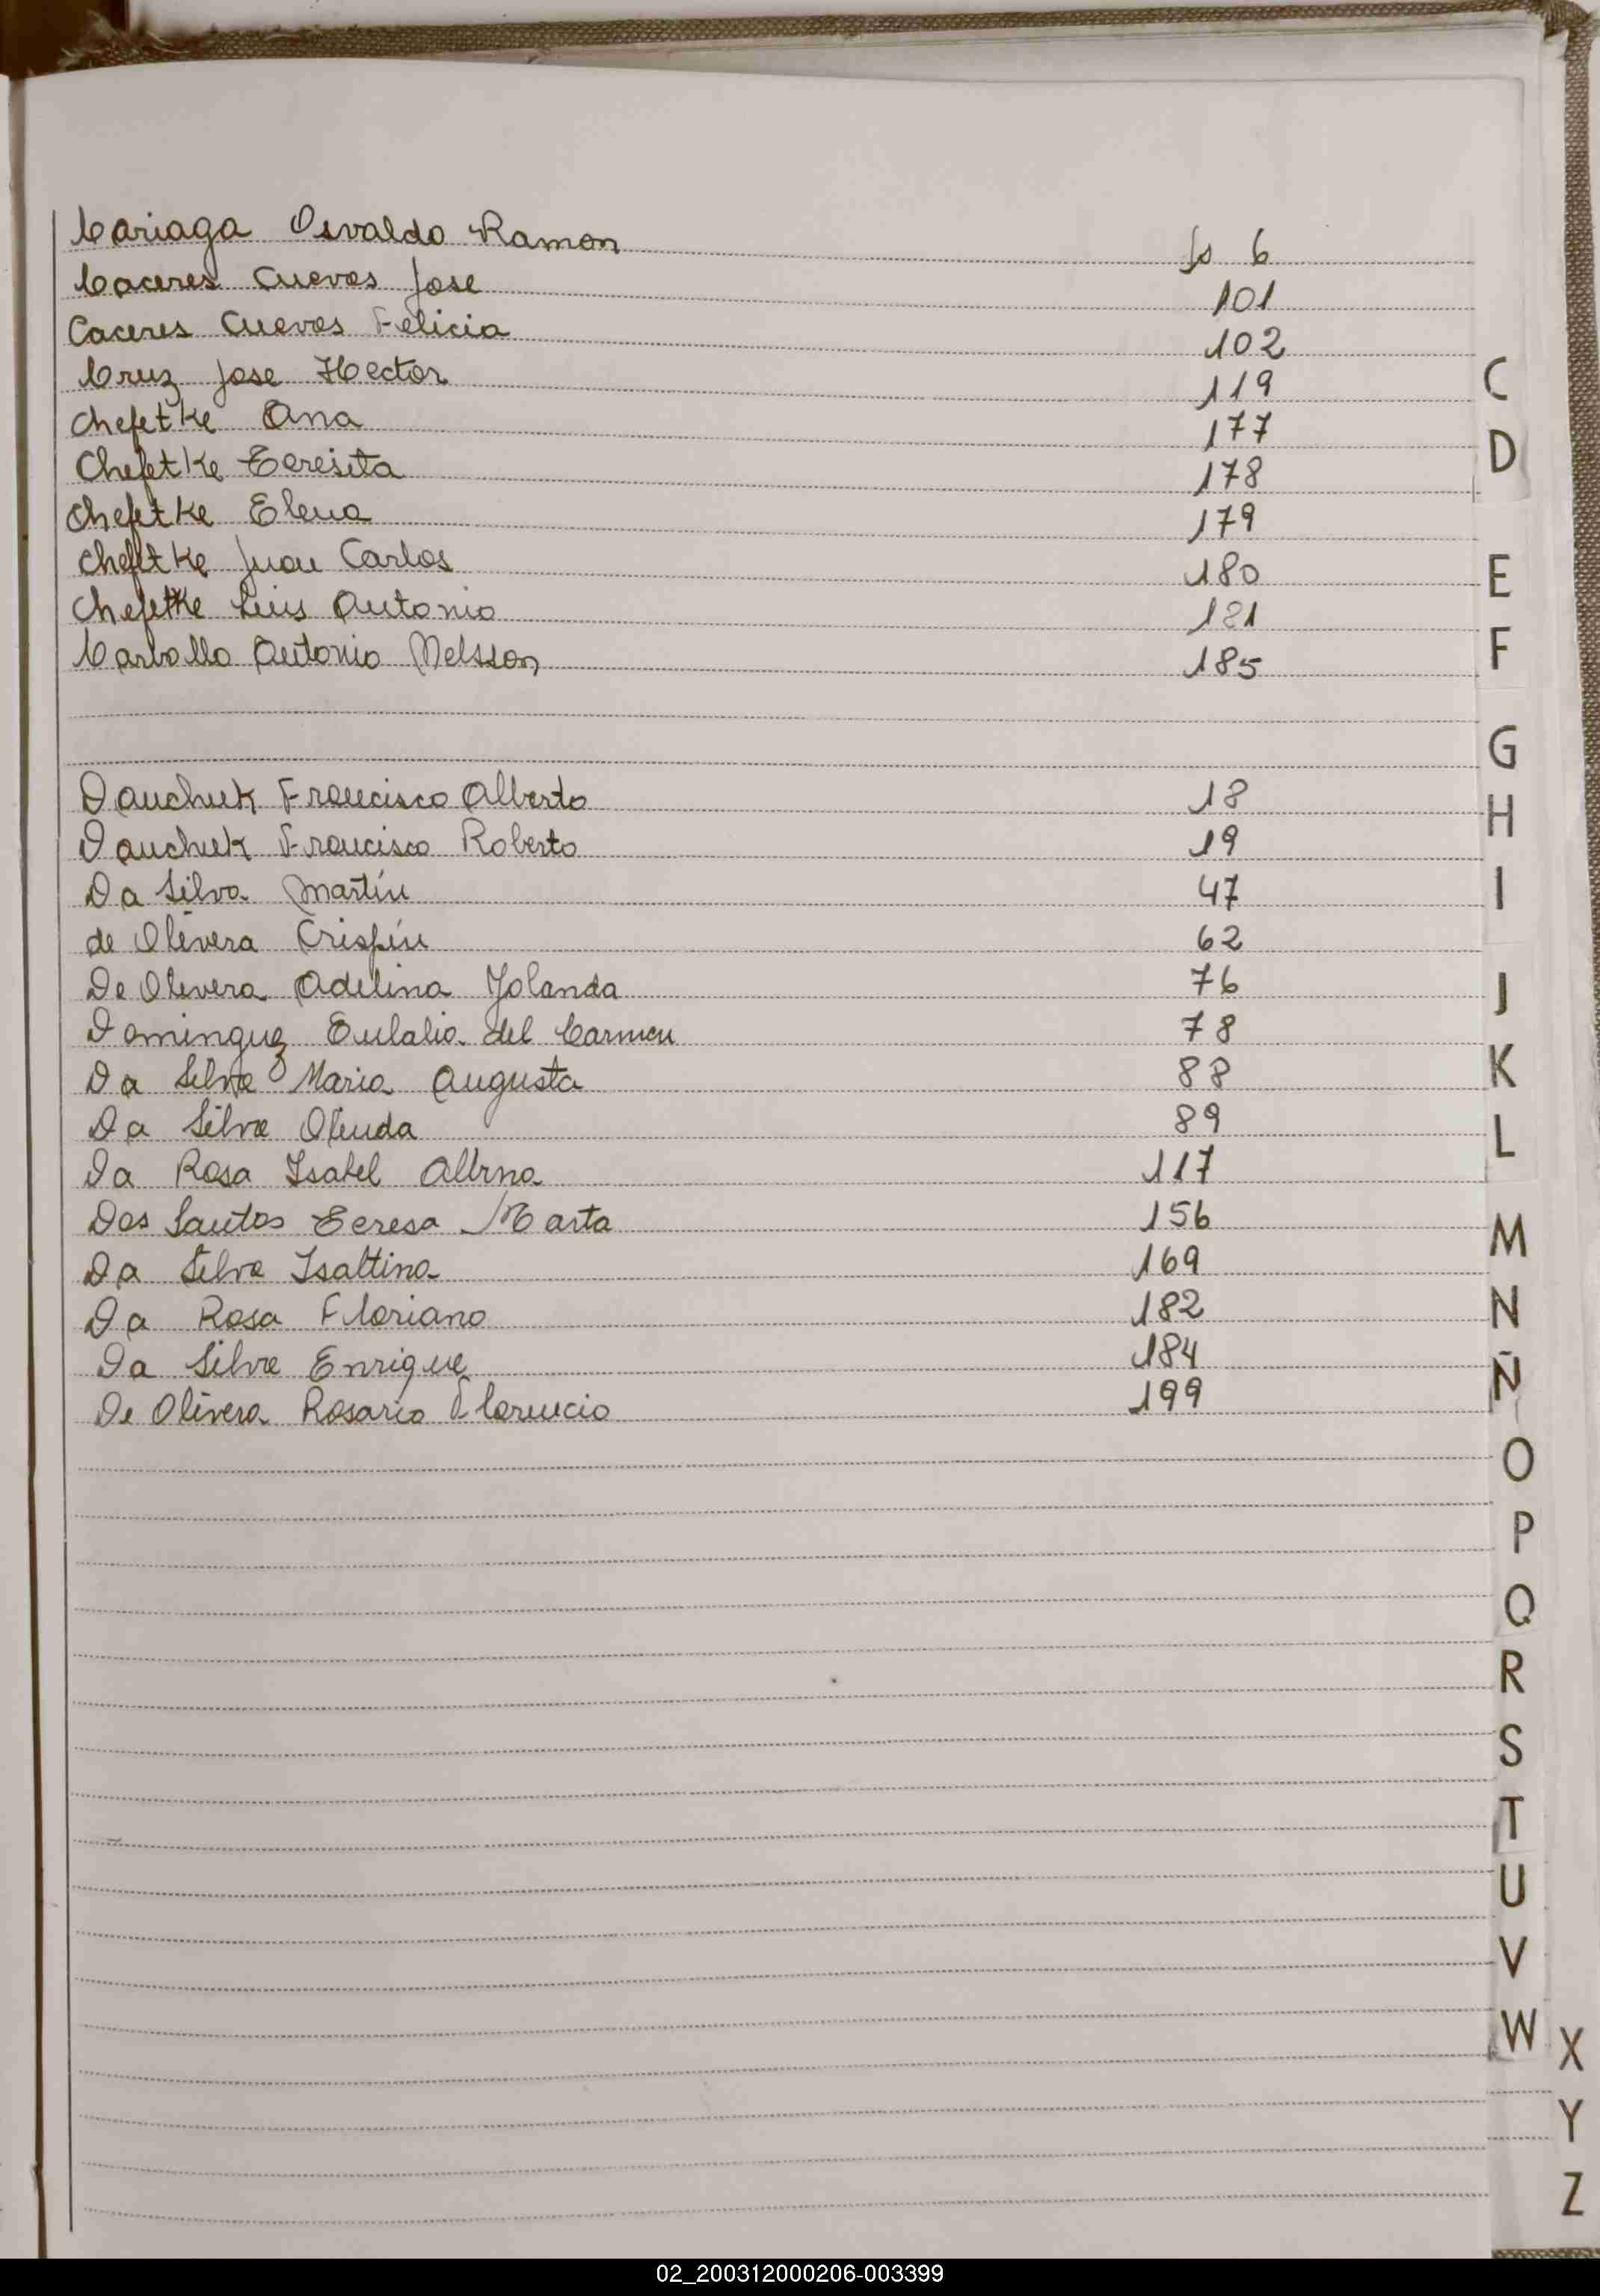 Cariaga Osvaldo Ramon fs 6
Caceres Cuevas Jose 101
Caceres Cuevas Felicia 102
Cruz Jose Hector 119
Chefetke Ana 177
Chefetke Teresita 178
Chefetke Elena 179
Chefetke Juan Carlos 180
Chefetke Luis Antonio 181
Carballo Antonio Nelsson 185
Dauchuk Francisco Alberto 18
Dauchuk Francisco Roberto 19
Da Silva Martín 47
de Olivera Crispín 62
De Olivera Adelina Yolanda 76
Dominguez Eulalia del Carmen 78
Da Silva Maria Augusta 88
Da Silva Olinda 89
Da Rosa Isabel Albina 117
Dos Santos Teresa Marta 156
Da Silva Isaltina 169
Da Rosa Floriano 182
Da Silva Enrique 184
De Olivera Rosario Florencio 199
C
D
E
F
G
H
I
J
K
L
M
N
Ñ
O
P
Q
R
S
T
U
V
W
X
Y
Z
02_200312000206-003399